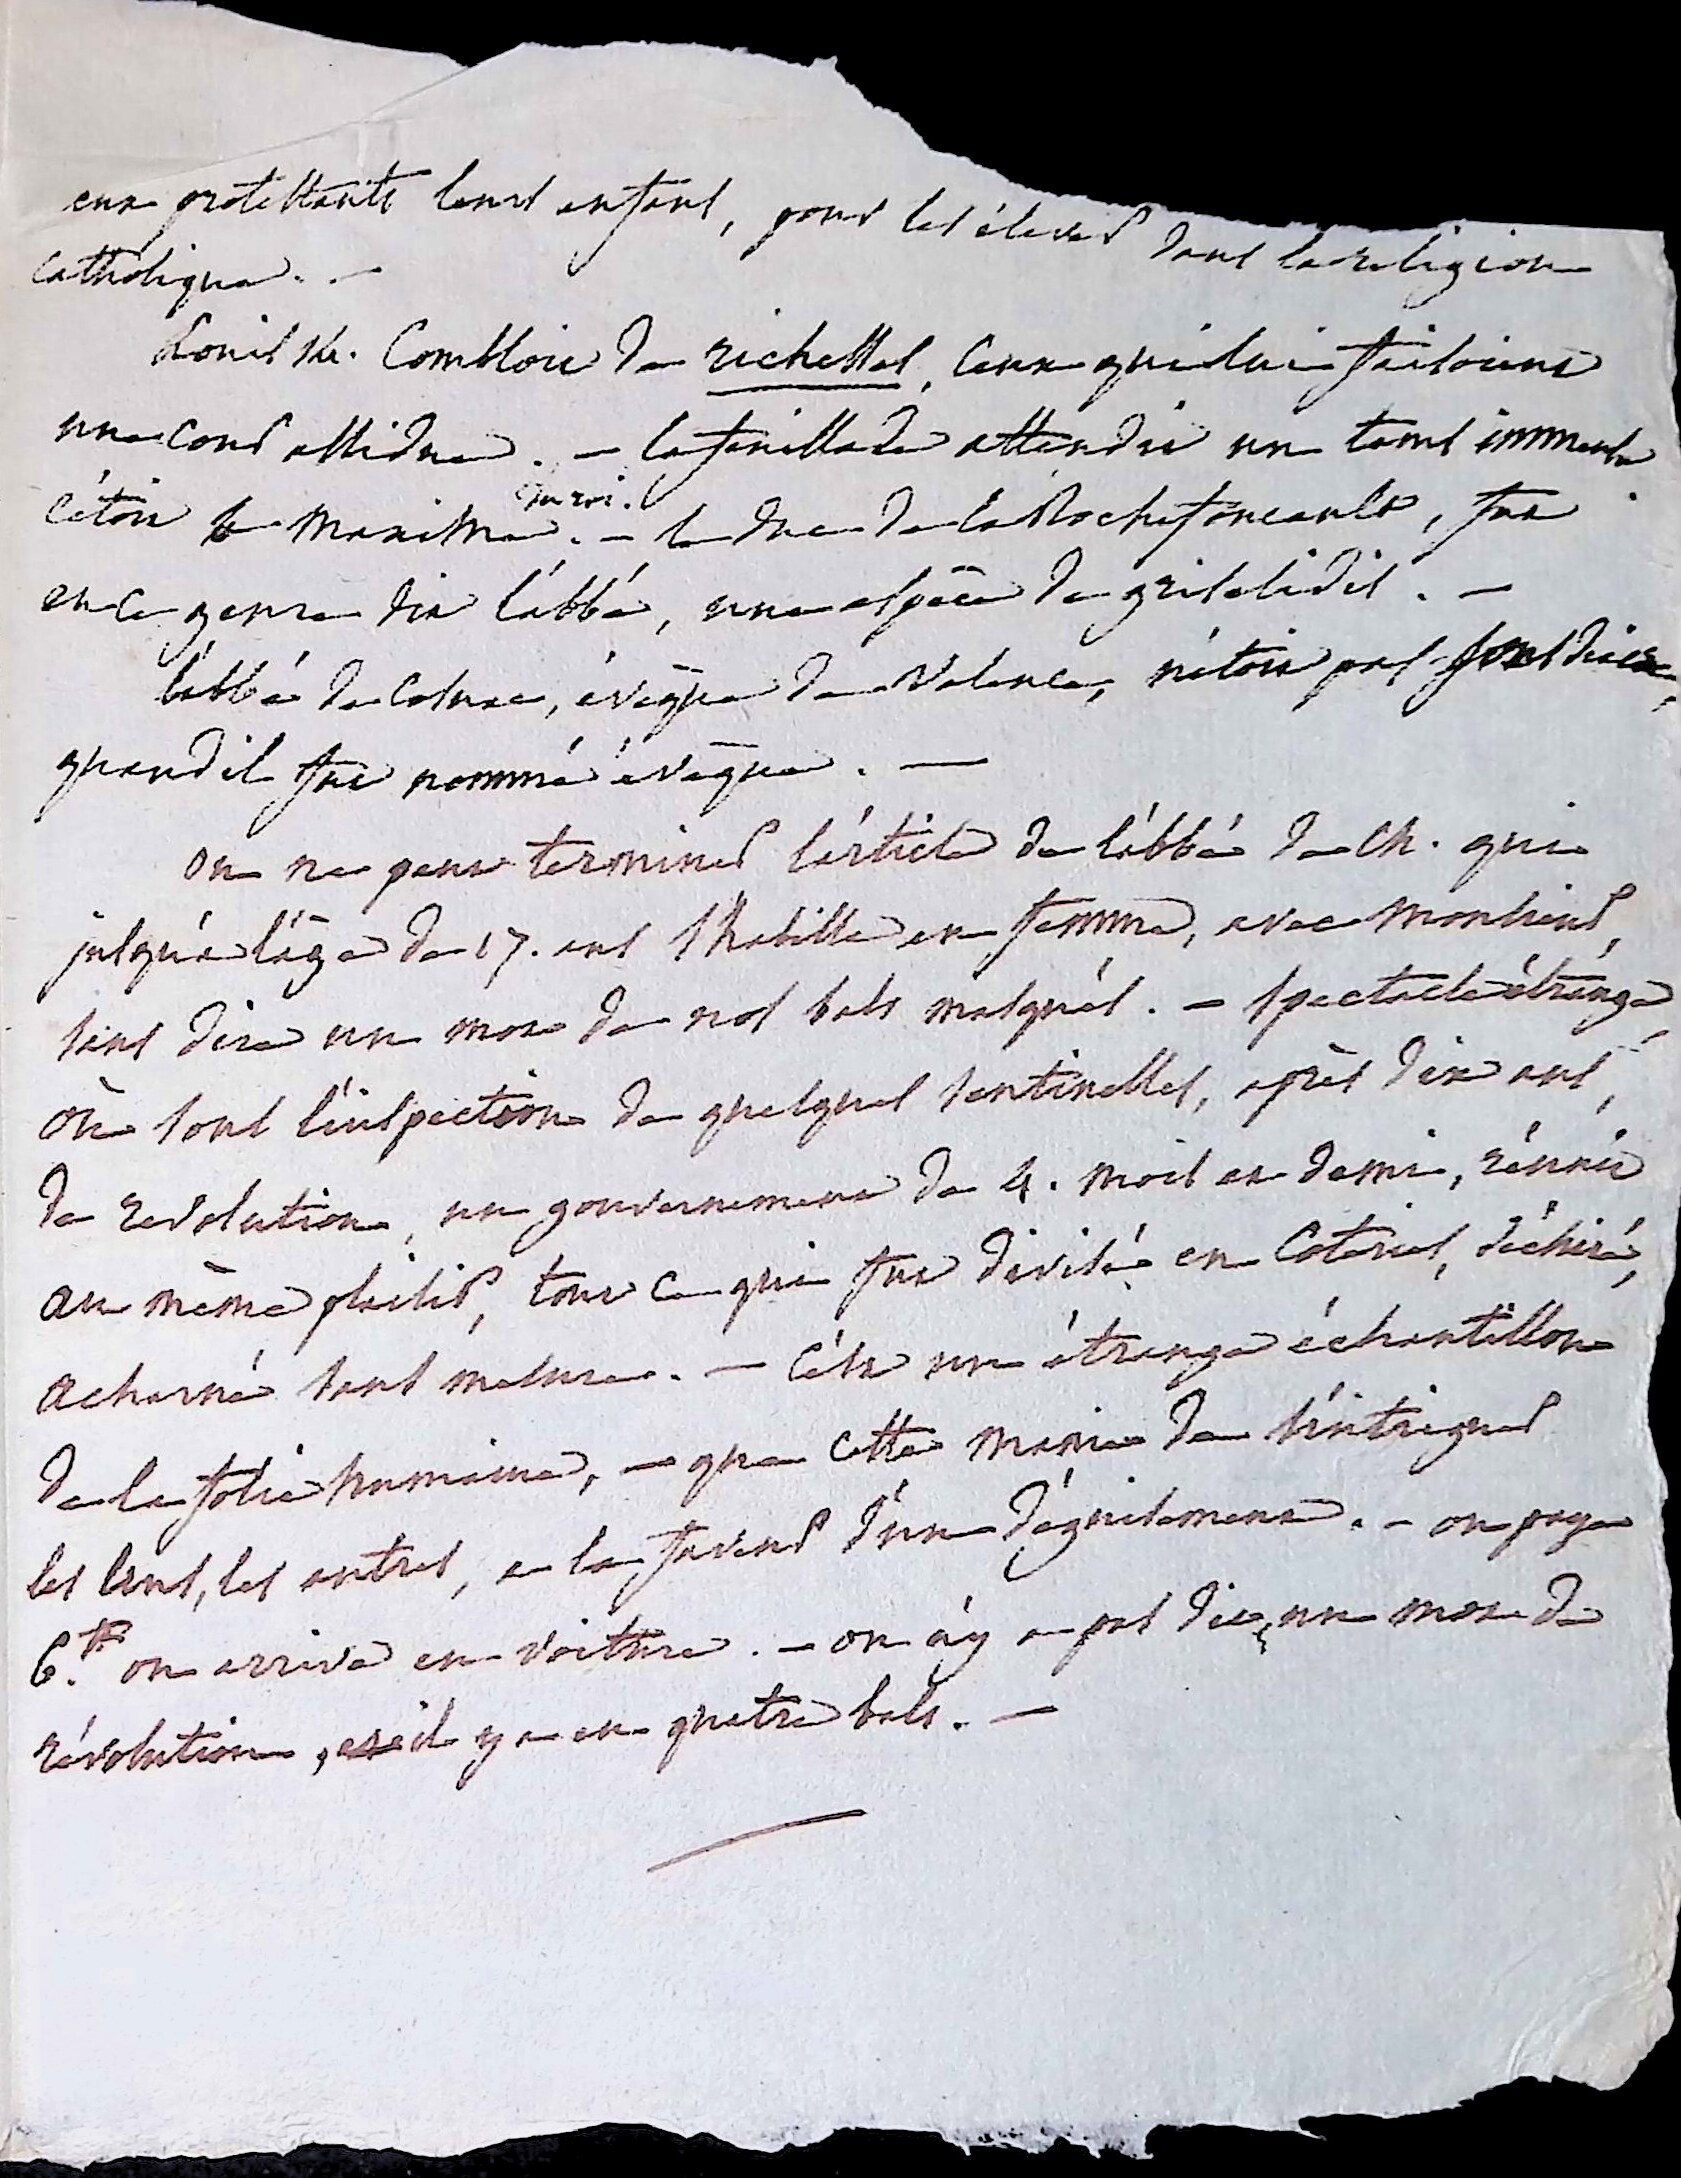 aux protestants leurs enfans, pour les élever dans la religion
catholique. —
Louis 14. Combloit de richesses, ceux qui lui faisoient
une cour assidue. — la feuillade attendit un tems immense
c'étoit la maxime du roi. — le duc de la Rochefoucault, fut
en ce genre dit l'abbé, une espèce de griselidis. —
l'abbé de Cosnac, évêque de Valence, n'étoit pas sousdiacre,
quand il fut nommé évêque. —
on ne peut terminer l'article de l'abbé de Ch. qui
jusqu'à l'âge de 17. ans s'habilla en femme, avec Monsieur,
sans dire un mot de nos bals masqués. — spectacle étrange,
où sous l'inspection de quelques sentinelles, après dix ans,
de revolution, un gouvernement de 4. mois et demi, réunit
au même plaisir, tout ce qui fut divisé en Coteries, déchiré,
acharné sans mesure. — C'est un étrange échantillon
de la folie humaine, — que cette manie de s'intriguer
les uns, les autres, a la faveur d'un déguisement. — on paye
6.tt on arrive en voiture. — on n'y a pas dit, un mot de
révolution, et il y a eu quatre bals. —